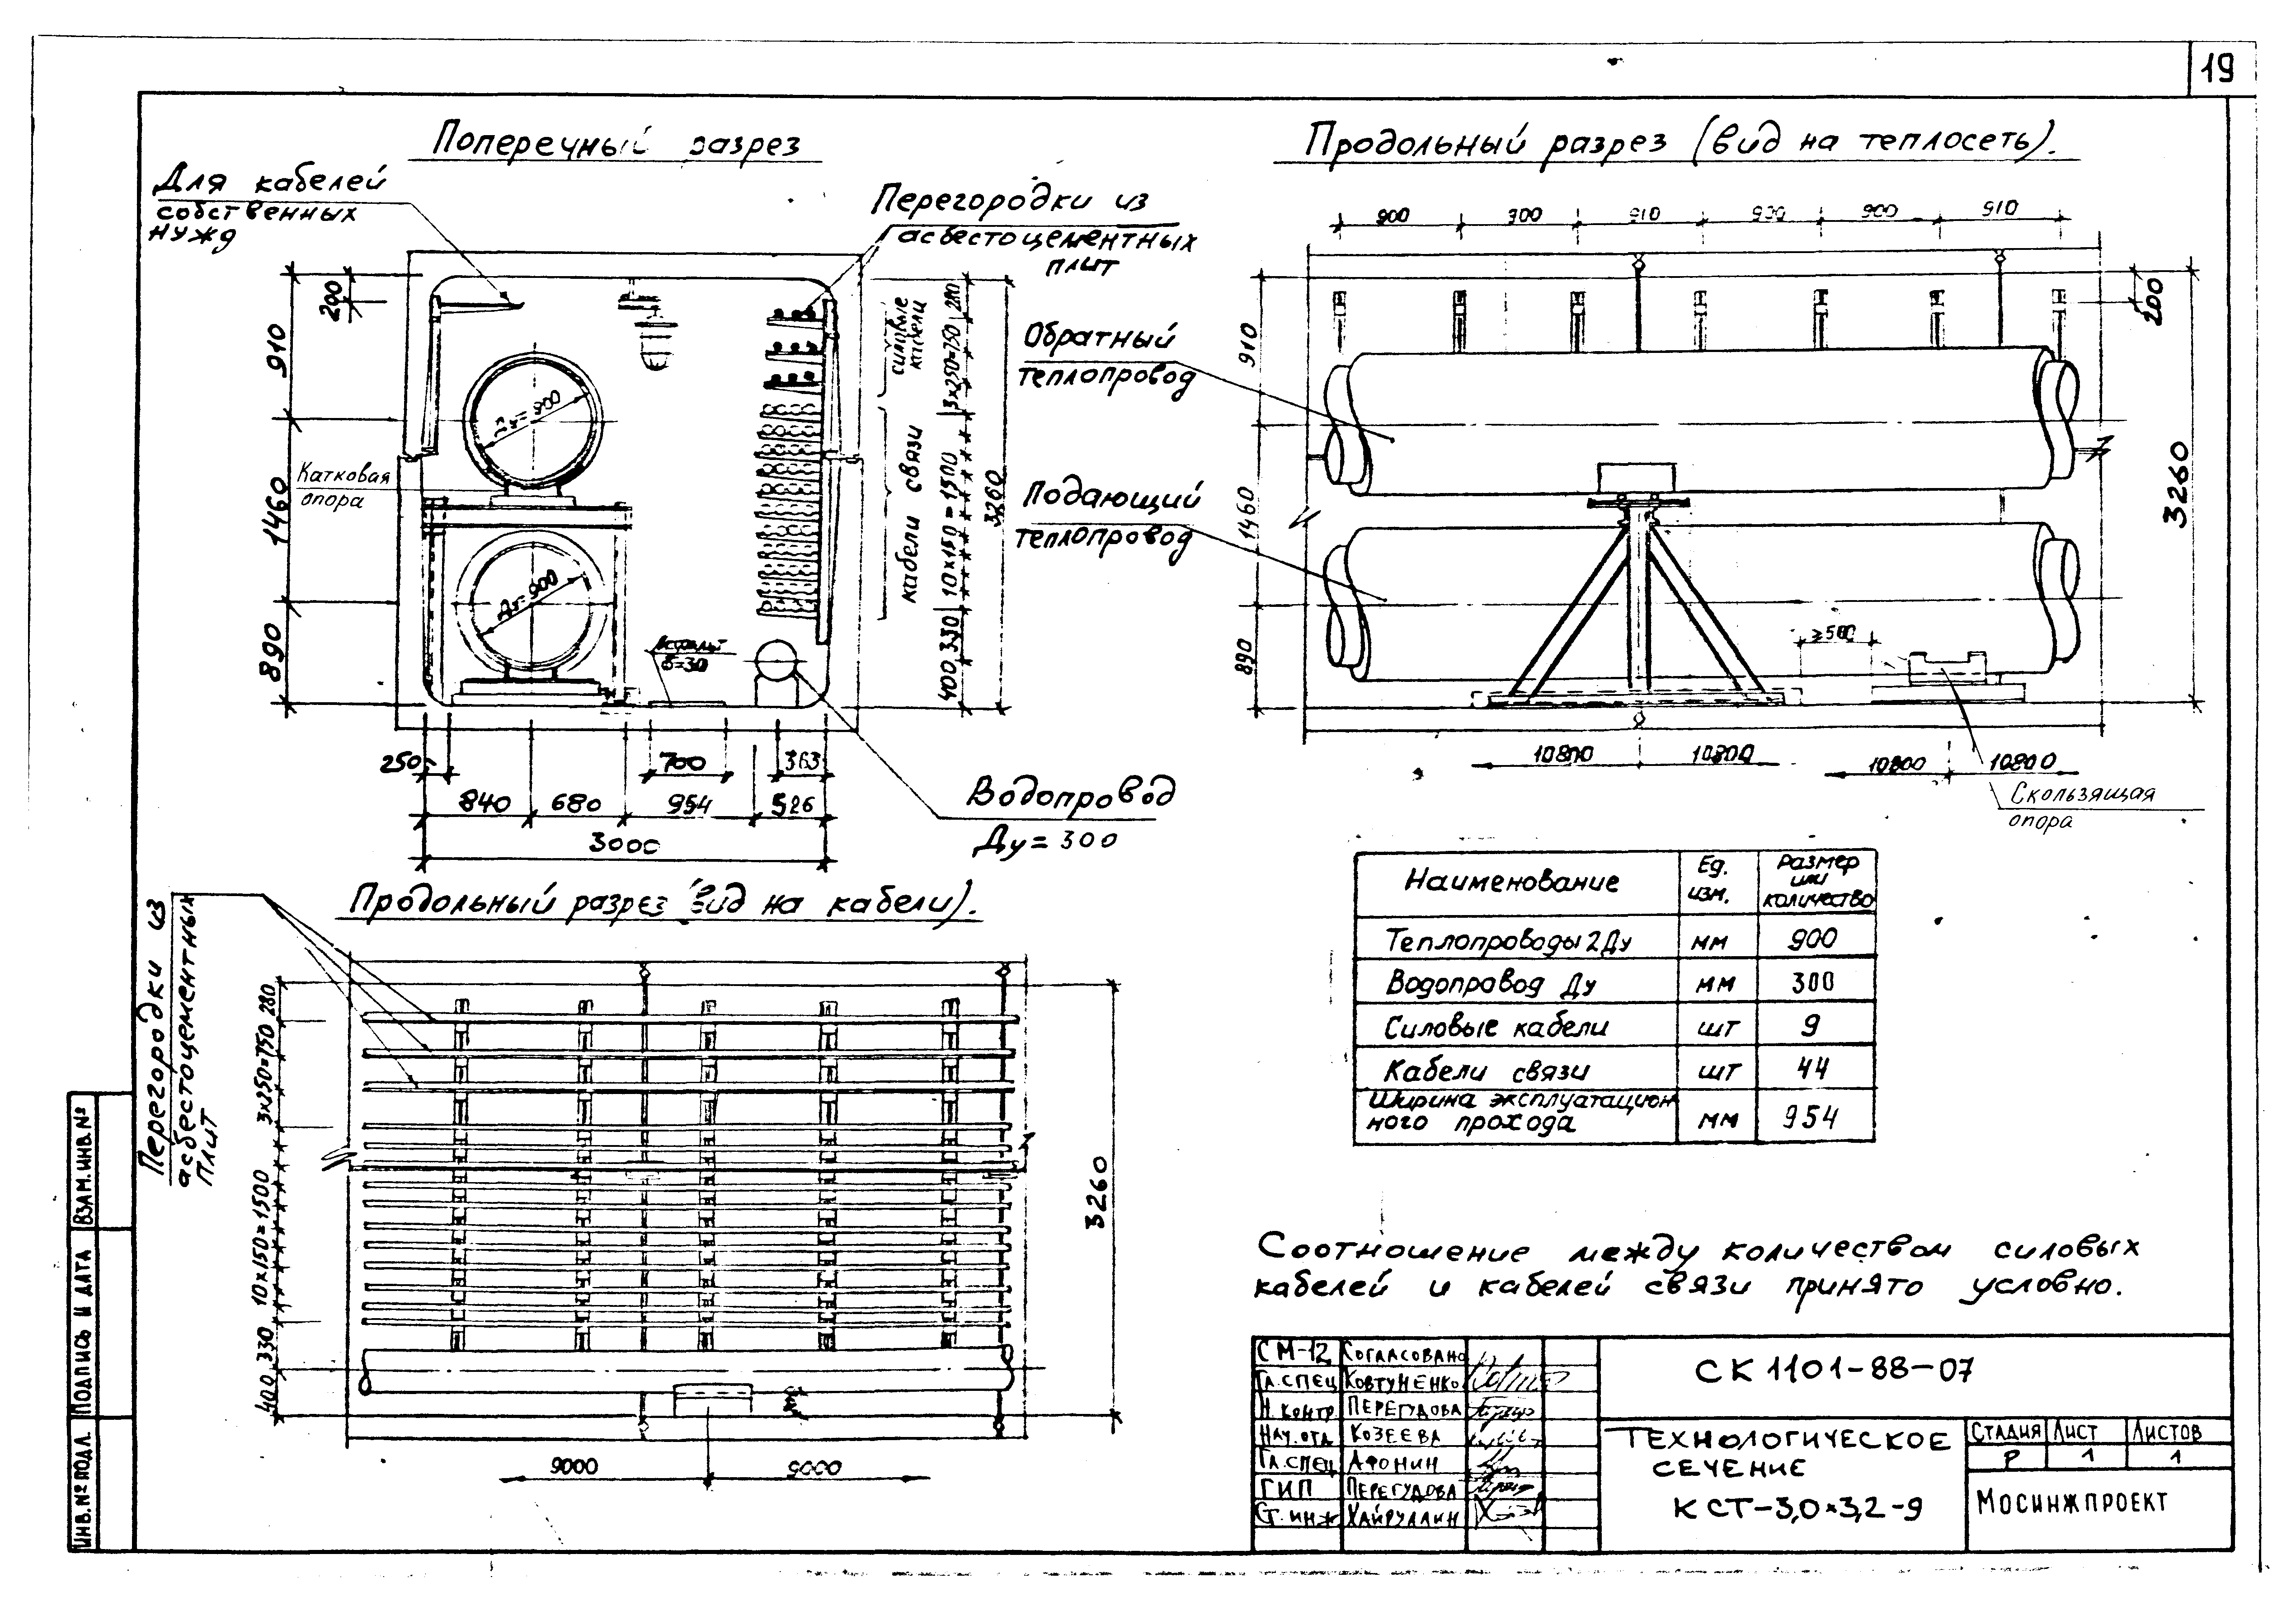 19
Поперечный разрез
Для кабелей
собственных
нужд
Перегородки из
асбестоцементных
плит
200
910
1460
890
Ду=900
Катковая
опора
Ду=900
δ=30
силовые
кабели
кабели связи
280
3х250=750
10х150=1500
330
400
3260
250
700
363
840
680
954
526
3000
Водопровод
Ду=300
Продольный разрез (вид на теплосеть).
900
900
910
900
900
910
200
910
1460
890
3260
Обратный
теплопровод
Подающий
теплопровод
≥500
10800
10800
10800
10800
Скользящая
опора
Продольный разрез (вид на кабели).
Перегородки из
асбестоцементных
плит
280
3х250=750
10х150=1500
330
400
3260
9000
9000
Наименование
Ед.
изм.
Размер
или
количество
Теплопроводы 2Ду мм 900
Водопровод Ду мм 300
Силовые кабели шт 9
Кабели связи шт 44
Ширина эксплуатацион
ного прохода мм 954
Соотношение между количеством силовых
кабелей и кабелей связи принято условно.
СМ-12 Согласовано
Гл.спец Ковтуненко
Н.контр Перегудова
Нач.отд Козеева
Гл.спец Афонин
ГИП Перегудова
Ст.инж Хайруллин
СК 1101-88-07
Технологическое
сечение
КСТ-3,0х3,2-9
Стадия Лист Листов
Р 1 1
Мосинжпроект
Взам.инв.№
Подпись и дата
Инв.№ подл.